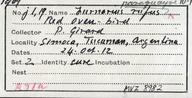 Furnarius rufus
Red oven-bird
Collector P. Girard
Locality Simoca, Tucuman, Argentina
Date 24. Oct. 12.
Set 2 Identity sure Incubation
MVZ 8982